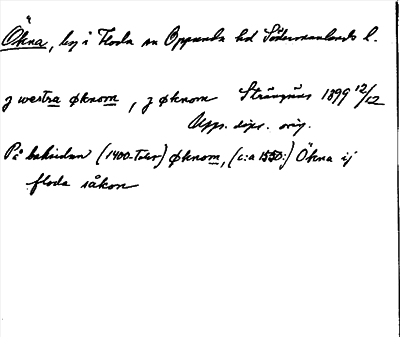 Ökna, by i Floda sn Oppunda hd Södermanlands l.
j westra øknom, j øknom Strängnäs 1399 12/12
Upps. dipl. orig.
På baksidan (1400-talet) øknom, (c:a 1550:) Ökna ij
floda såkon